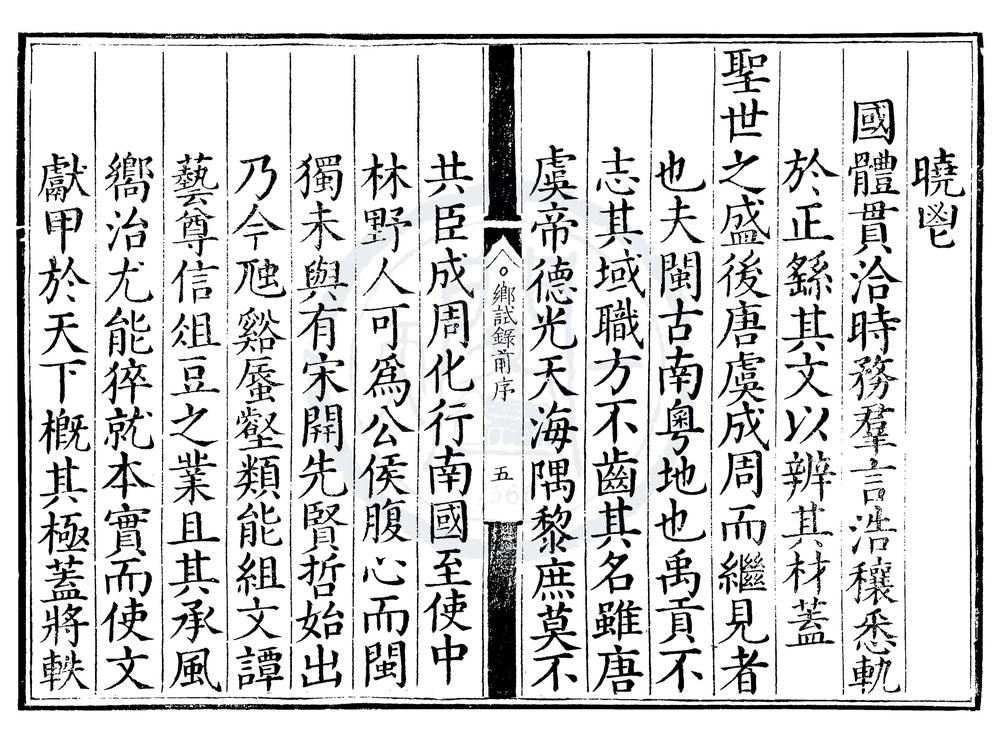 曉鬯
國體貫洽時務羣言浩穰悉軌
於正繇其文以辨其材蓋
聖世之盛後唐虞成周而繼見者
也夫閩古南粵地也禹貢不
志其域職方不齒其名雖唐
虞帝德光天海隅黎庶莫不
鄉試錄前序 五
共臣成周化行南國至使中
林野人可爲公侯腹心而閩
獨未與有宋開先賢哲始出
乃今虺谿蜃壑類能組文譚
藝尊信俎豆之業且其承風
嚮治尤能猝就本實而使文
獻甲於天下概其極蓋將軼